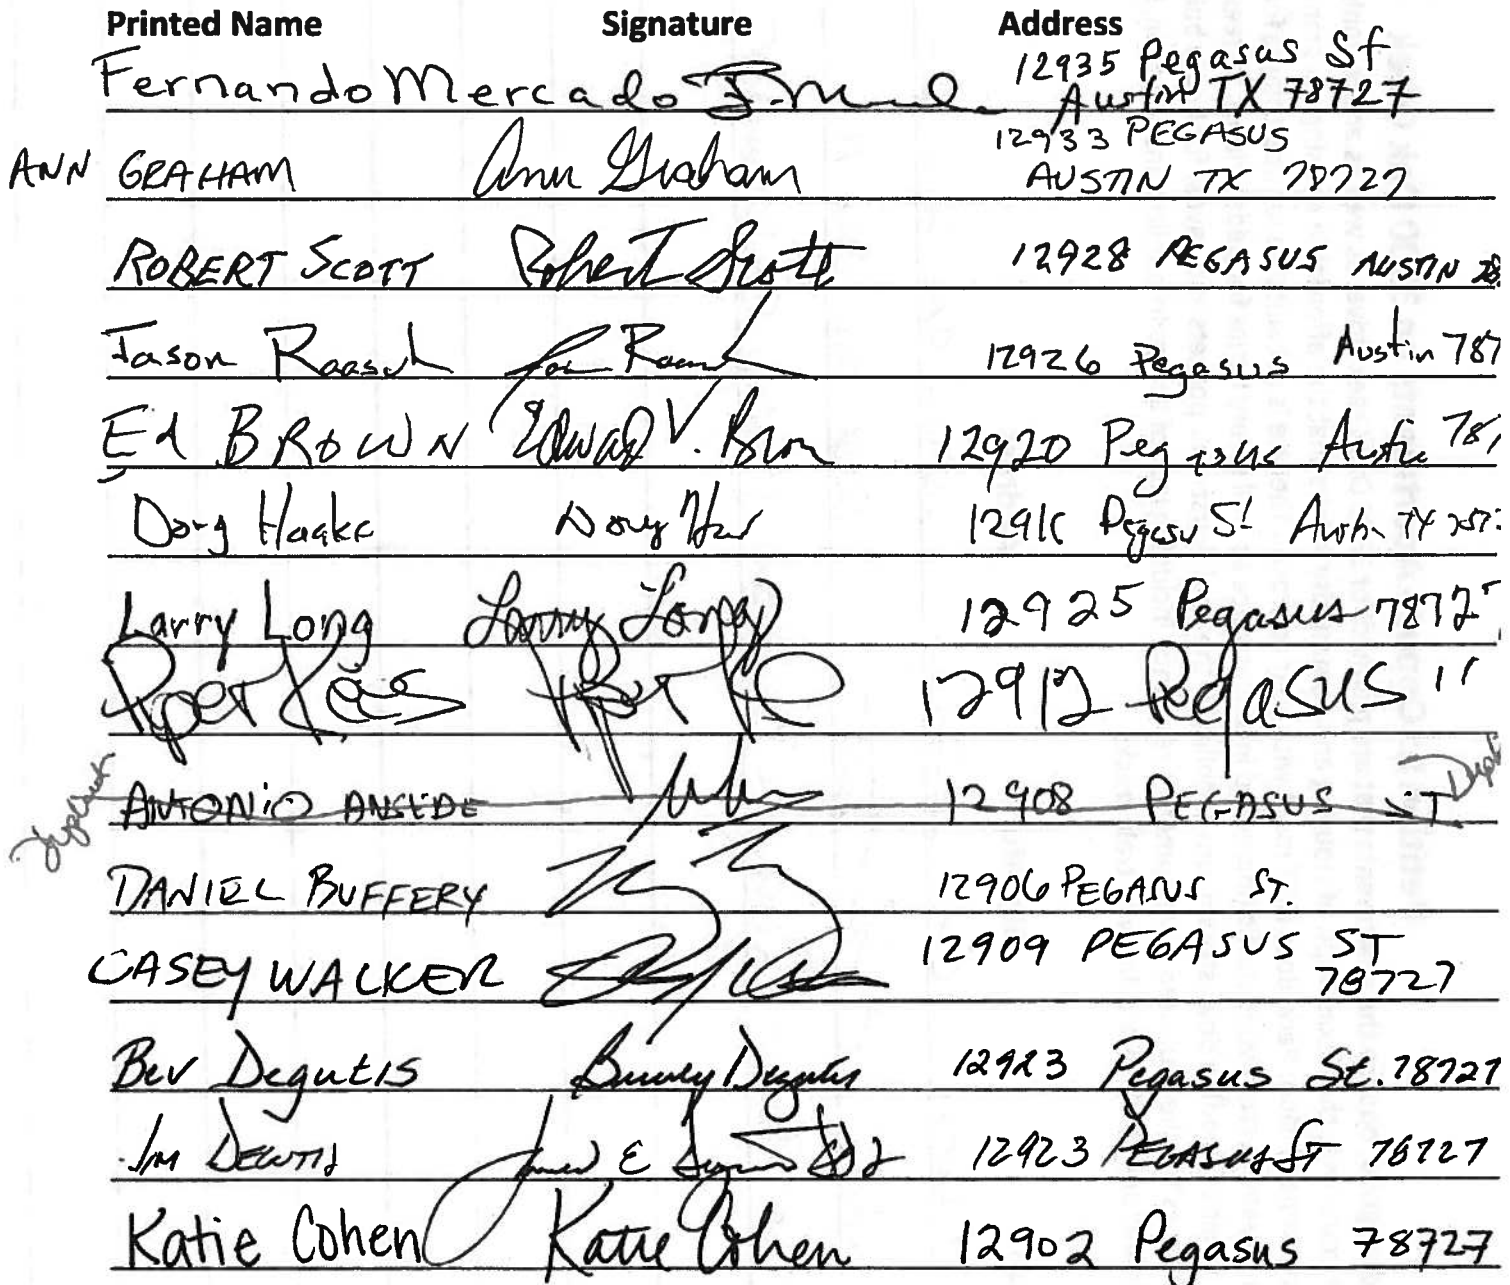 Printed Name Signature Address
Fernando Mercado F. M 12935 Pegasus St
Austin TX 78727
ANN GRAHAM Ann Graham 12933 PEGASUS
AUSTIN TX 78727
ROBERT SCOTT Robert Scott 12928 PEGASUS AUSTIN 78
Jason Raasch 12926 Pegasus Austin 787
Ed BROWN Edward V. Brown 12920 Pegasus Austin 787
Doug Haake Doug 12916 Pegasus St Austin TX 787
Larry Long Larry Long 12925 Pegasus 7872
Piper Kees 12912 Pegasus "
ANTONIO ANSEDE 12908 PEGASUS ST
DANIEL BUFFERY 12906 PEGASUS ST.
CASEY WALKER 12909 PEGASUS ST
78727
Bev Degutis Beverly Degutis 12923 Pegasus St. 78727
Jim Degutis James E Degutis 12923 Pegasus St 78727
Katie Cohen Katie Cohen 12902 Pegasus 78727